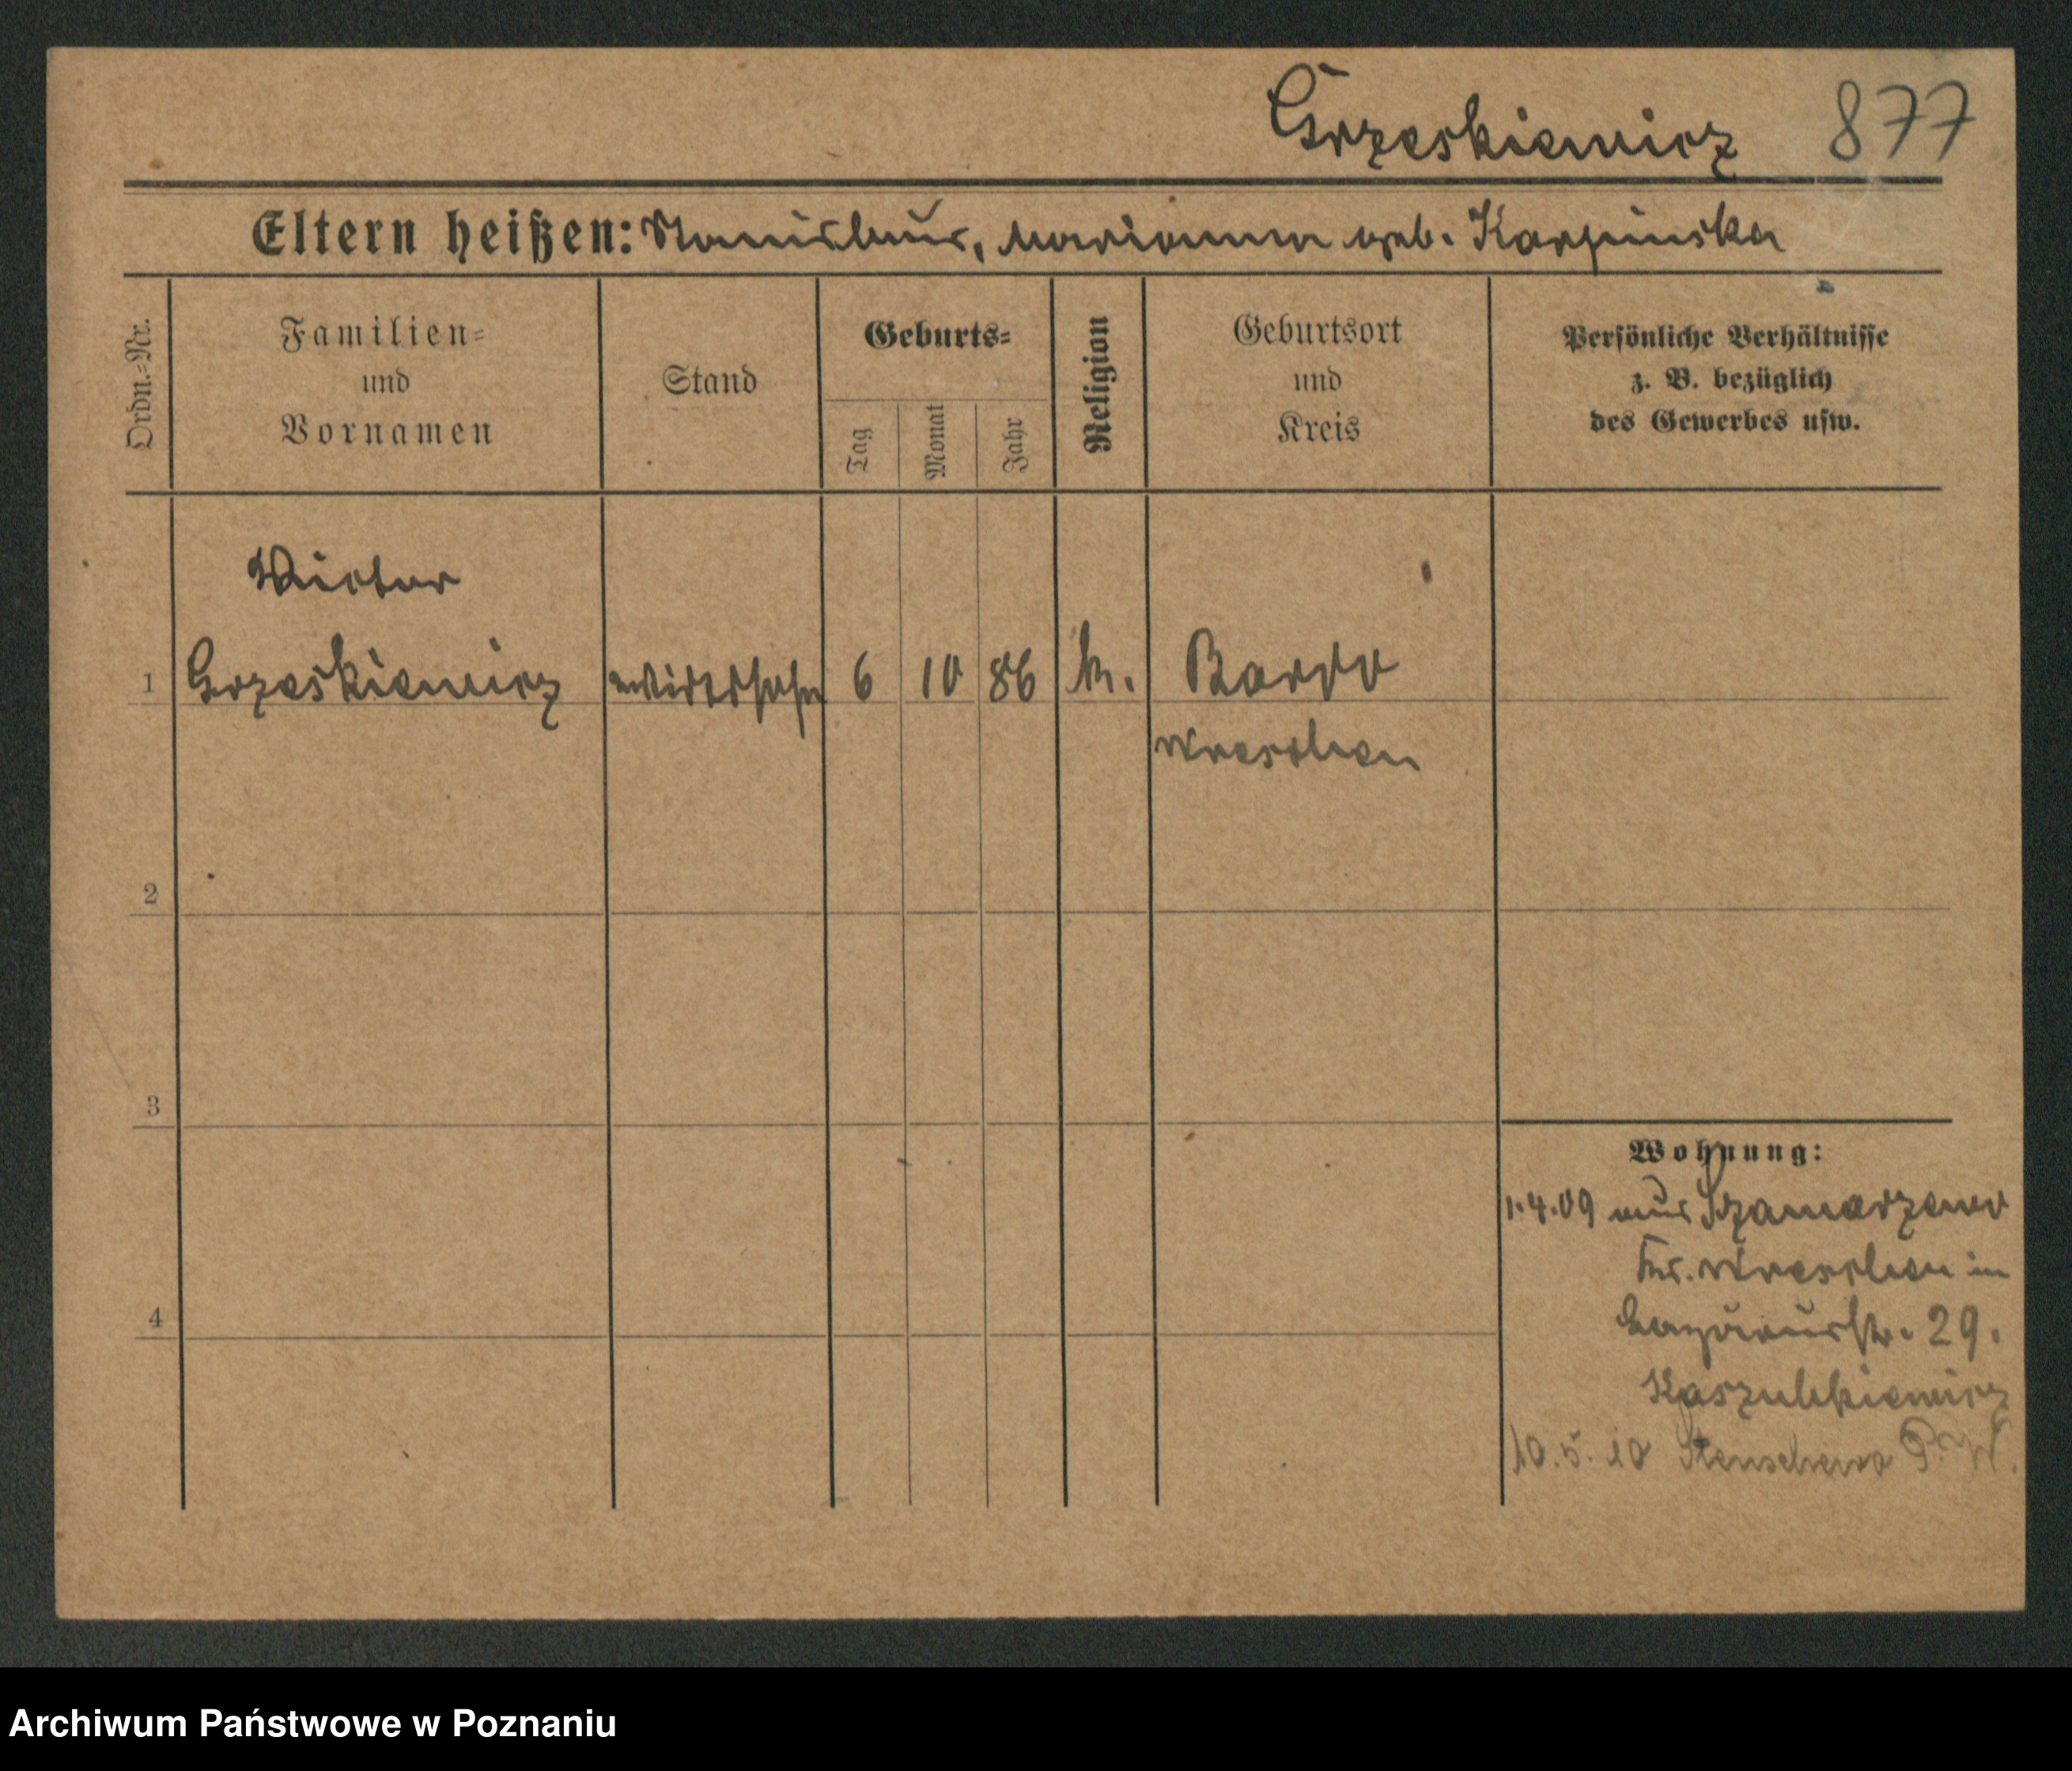 Grzeskiewicz 877
Eltern heißen: Stanislaus, Marianna geb. Karpinska
Ordn.=Nr.
Familien=
und
Vornamen
Stand
Geburts=
Tag
Monat
Jahr
Religion
Geburtsort
und
Kreis
Persönliche Verhältnisse
z. B. bezüglich
des Gewerbes usw.
Victor
1 Grzeskiewicz 6 10 86 k. Bardo
Wreschen
2
3
4
Wohnung:
1.4.09 aus Szamarzewo
Kr. Wreschen in
Lazarusstr. 29.
Kaszubkiewicz
10.5.10 Stenschewo P. W.
Archiwum Państwowe w Poznaniu